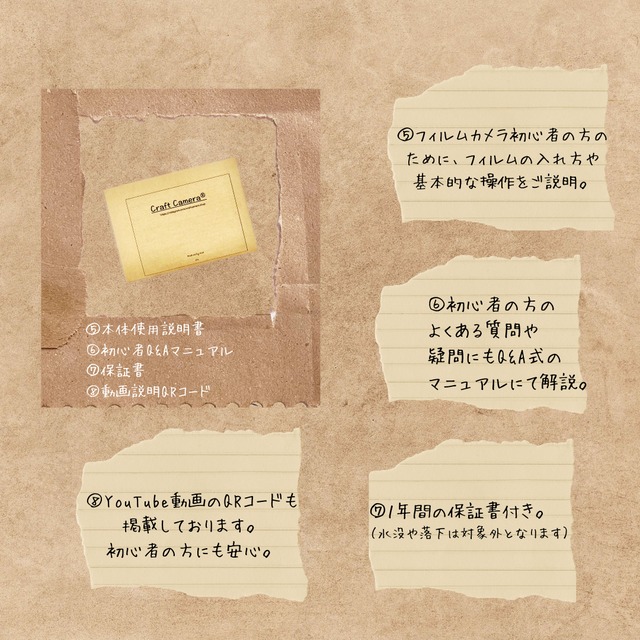 Craft Camera®
⑤本体使用説明書
⑥初心者Q&Aマニュアル
⑦保証書
⑧動画説明QRコード
⑤フィルムカメラ初心者の方の
ために、フィルムの入れ方や
基本的な操作をご説明。
⑥初心者の方の
よくある質問や
疑問にもQ&A式の
マニュアルにて解説。
⑧YouTube動画のQRコードも
掲載しております。
初心者の方にも安心。
⑦1年間の保証書付き。
(水没や落下は対象外となります)